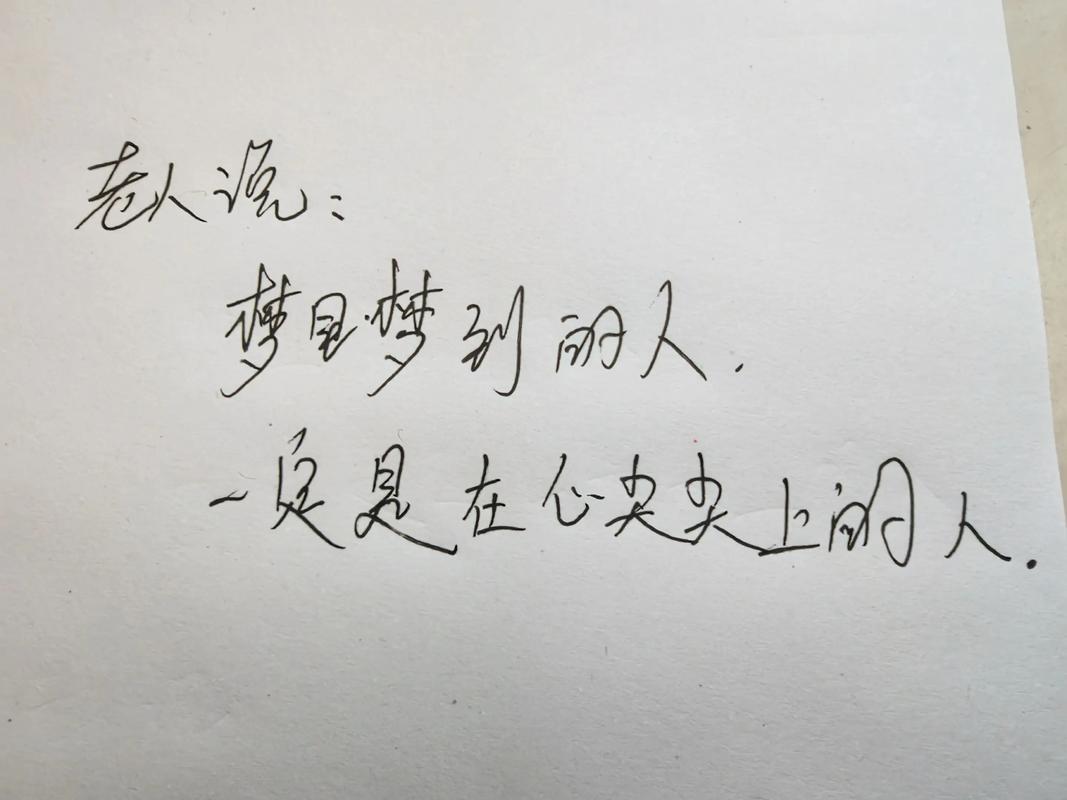 老人说：
梦里梦到的人.
一定是在心尖尖上的人.